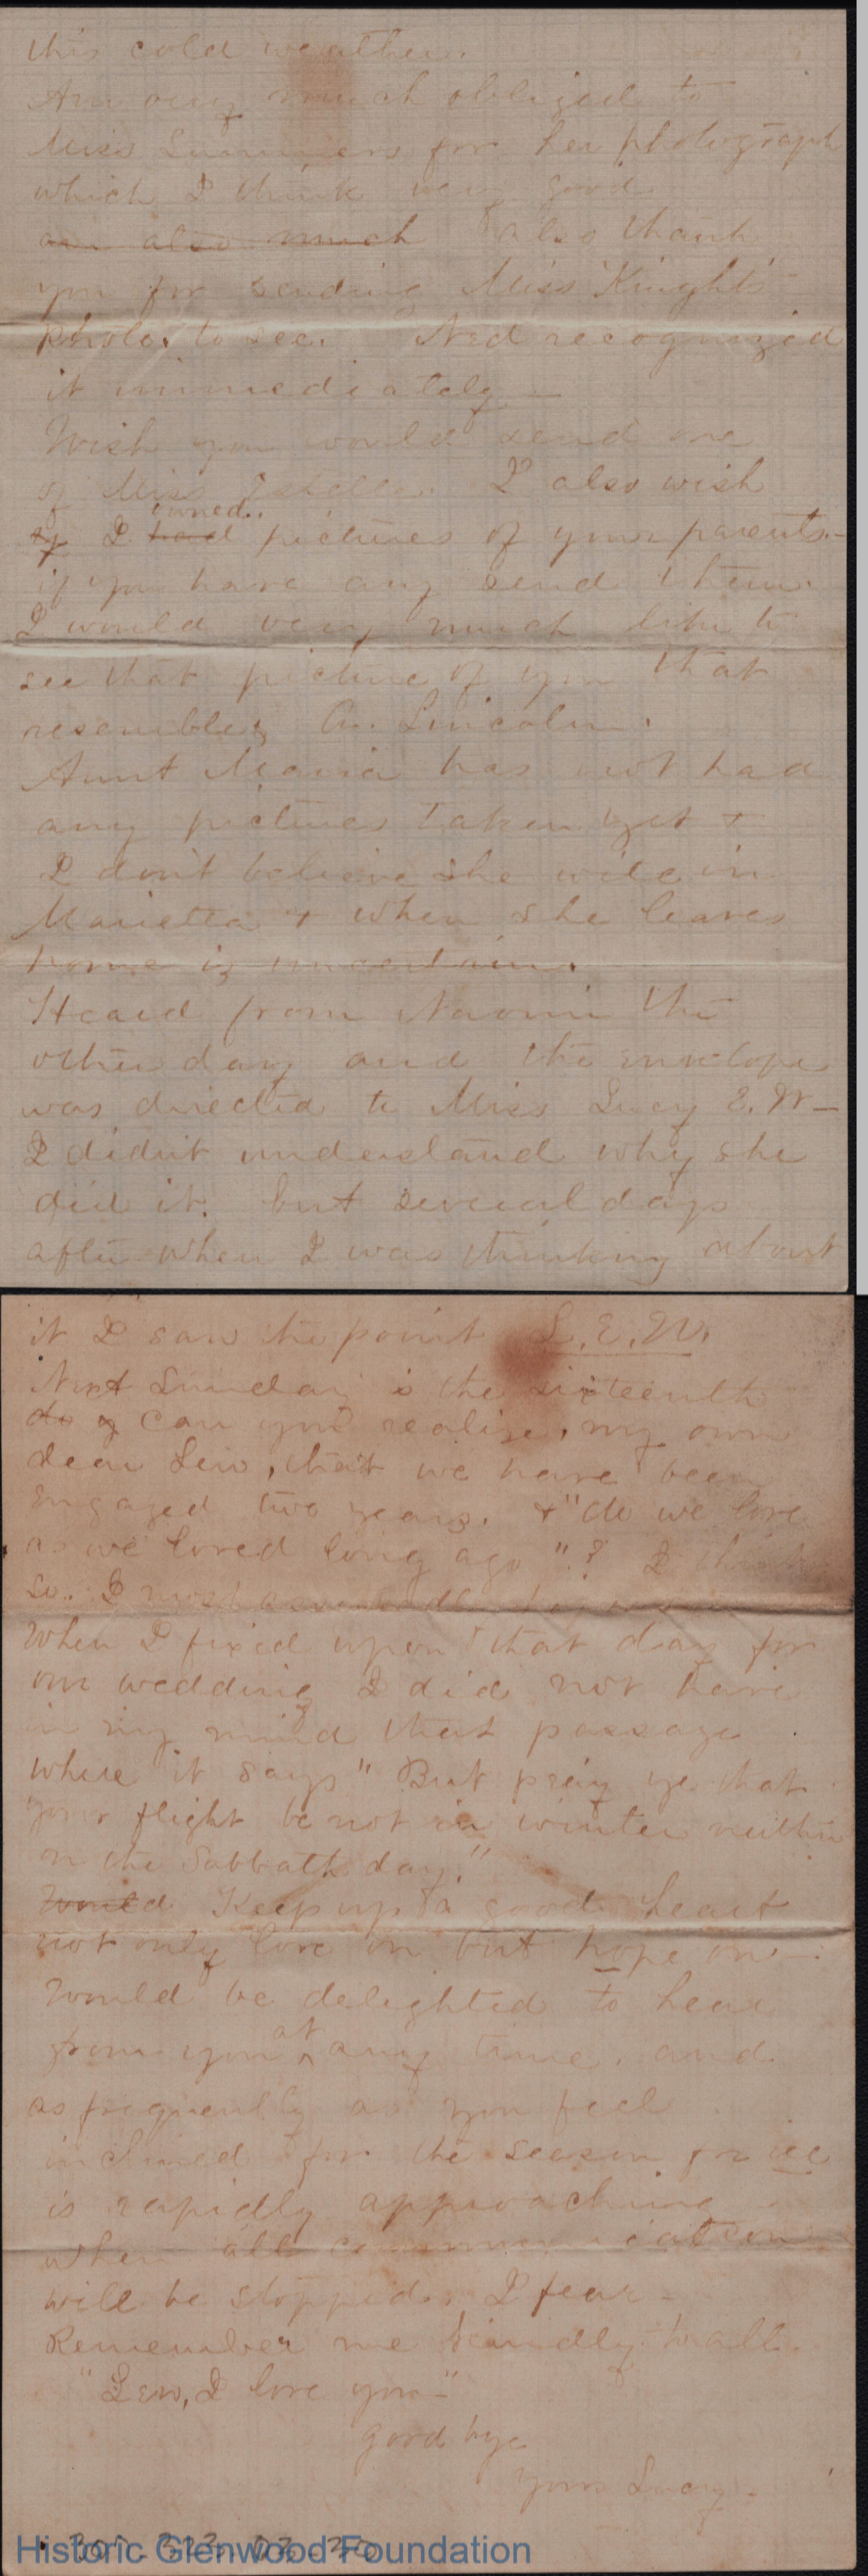 this cold weather.
Am very much obliged to
Miss Summers for her photograph
which I think very good.
am also much I also thank
you for sending Miss Knight's
photo. to see. Ned recognized
it immediately —
Wish you would send one
of Miss Estelle. I also wish
owned..
of I had pictures of your parents.—
if you have any send them.
I would very much like to
see that picture of you that
resembles A. Lincoln.
Aunt Maria has not had
any pictures taken yet +
I don't believe she will in
Marietta + when she leaves
home is uncertain.
Heard from Naomi the
other day and the envelope
was directed to Miss Lucy E. W—
I didn't understand why she
did it. but several days
after when I was thinking about
it I saw the point L. E. W.
Next Sunday is the sixteenth
do y can you realize, my own
dear Lew, that we have been
engaged two years. + "do we love
as we loved long ago"? I think
so. I most assuredly
When I fixed upon that day for
our wedding I did not have
in my mind that passage
where it says "But pray ye that
your flight be not in winter neither
on the Sabbath day."
Would Keep up a good heart
not only love on but hope on —
Would be delighted to hear
at
from you ^ any time, and
as frequently as you feel
inclined for the season for ice
is rapidly approaching
when all communication
will be stopped, I fear —
Remember me kindly to all.
"Lew, I love you—"
good bye
Yours Lucy.
Historic Glenwood Foundation